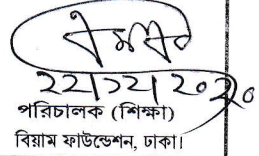 ২২।১২।২০২০
পরিচালক (শিক্ষা)
বিয়াম ফাউন্ডেশন, ঢাকা।